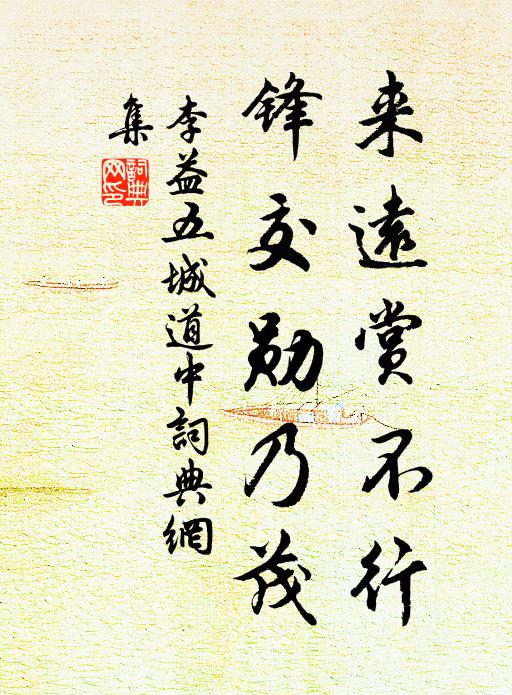 来遠赏不行
锋交勋乃茂
李益五城道中詞典網
集
詞典网印